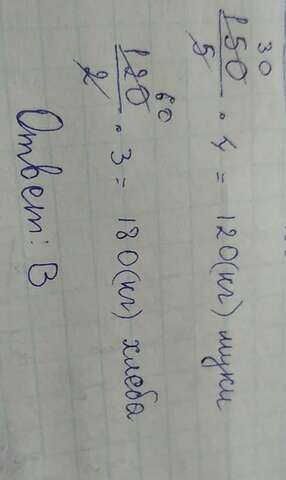 30
150/5 · 4 = 120(кг) муки
60
120/2 · 3 = 180(кг) хлеба
Ответ: В